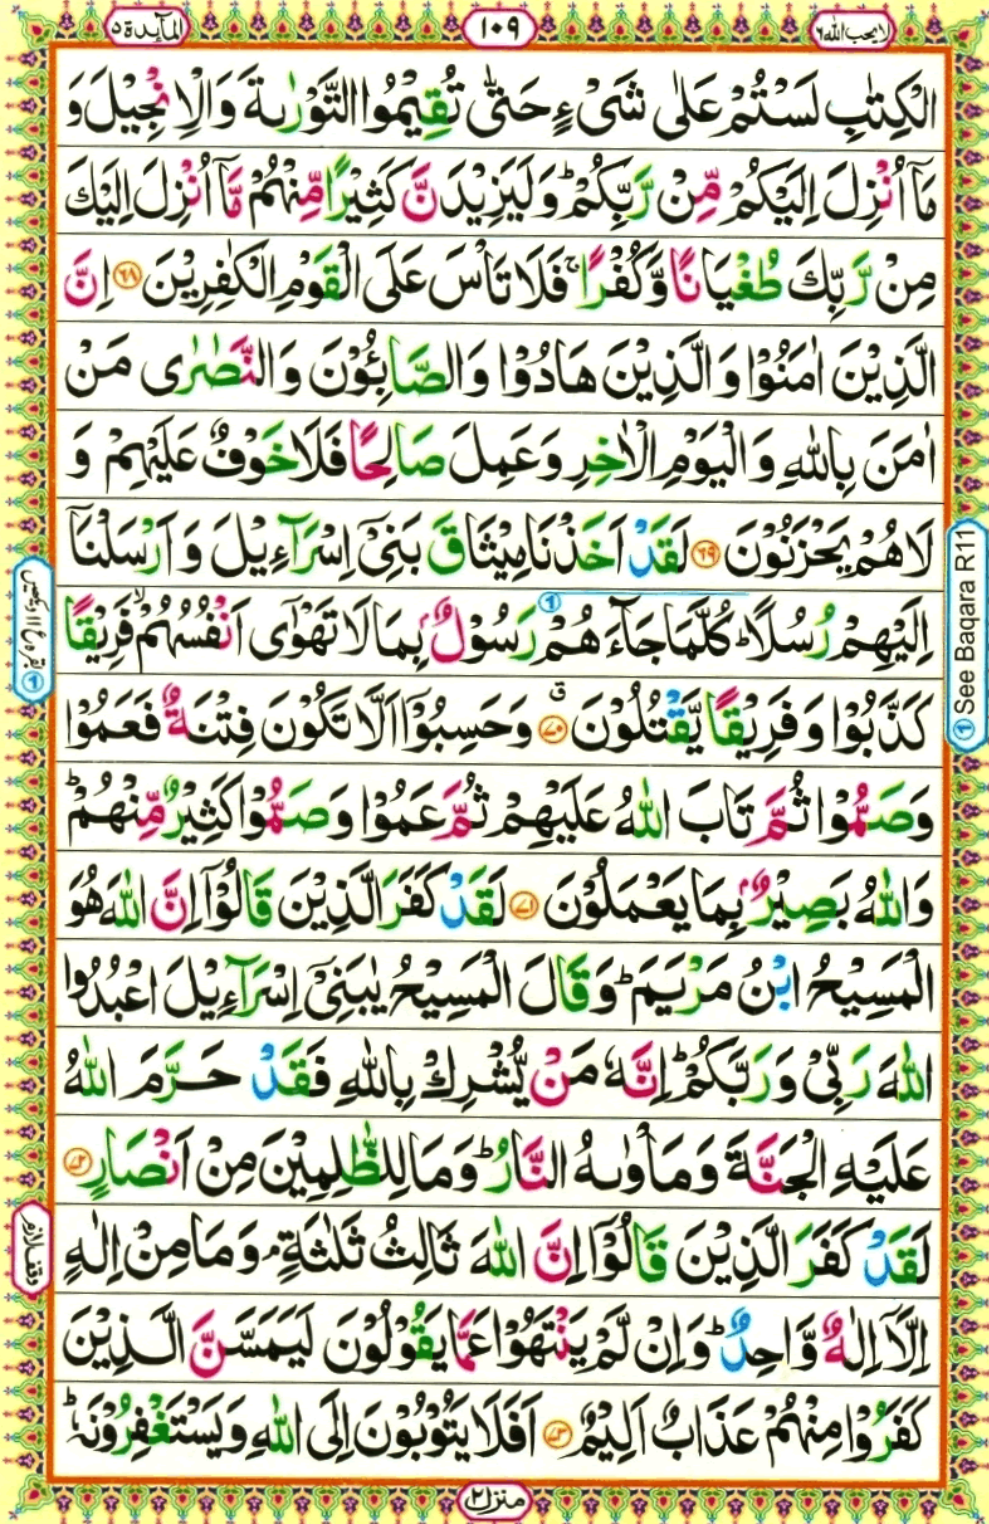 المآئدة ٥
١٠٩
لا يحب الله ٦
الْكِتٰبِ لَسْتُمْ عَلٰى شَىْءٍ حَتّٰى تُقِيْمُوا التَّوْرٰىةَ وَالْاِنْجِيْلَ وَ
مَآ اُنْزِلَ اِلَيْكُمْ مِّنْ رَّبِّكُمْ ؕ وَلَيَزِيْدَنَّ كَثِيْرًا مِّنْهُمْ مَّآ اُنْزِلَ اِلَيْكَ
مِنْ رَّبِّكَ طُغْيَانًا وَّكُفْرًا ۚ فَلَا تَاْسَ عَلَى الْقَوْمِ الْكٰفِرِيْنَ ﴿٦٨﴾ اِنَّ
الَّذِيْنَ اٰمَنُوْا وَالَّذِيْنَ هَادُوْا وَالصَّابِئُوْنَ وَالنَّصٰرٰى مَنْ
اٰمَنَ بِاللّٰهِ وَالْيَوْمِ الْاٰخِرِ وَعَمِلَ صَالِحًا فَلَا خَوْفٌ عَلَيْهِمْ وَ
لَا هُمْ يَحْزَنُوْنَ ﴿٦٩﴾ لَقَدْ اَخَذْنَا مِيْثَاقَ بَنِىْۤ اِسْرَآءِيْلَ وَاَرْسَلْنَاۤ
اِلَيْهِمْ رُسُلًا ؕ كُلَّمَا جَآءَهُمْ رَسُوْلٌۢ بِمَا لَا تَهْوٰٓى اَنْفُسُهُمْ ۙ فَرِيْقًا
كَذَّبُوْا وَفَرِيْقًا يَّقْتُلُوْنَ ﴿٧٠﴾ ۗ وَحَسِبُوْۤا اَلَّا تَكُوْنَ فِتْنَةٌ فَعَمُوْا
وَصَمُّوْا ثُمَّ تَابَ اللّٰهُ عَلَيْهِمْ ثُمَّ عَمُوْا وَصَمُّوْا كَثِيْرٌ مِّنْهُمْ ؕ
وَاللّٰهُ بَصِيْرٌۢ بِمَا يَعْمَلُوْنَ ﴿٧١﴾ لَقَدْ كَفَرَ الَّذِيْنَ قَالُوْۤا اِنَّ اللّٰهَ هُوَ
الْمَسِيْحُ ابْنُ مَرْيَمَ ؕ وَقَالَ الْمَسِيْحُ يٰبَنِىْۤ اِسْرَآءِيْلَ اعْبُدُوا
اللّٰهَ رَبِّىْ وَرَبَّكُمْ ؕ اِنَّهٗ مَنْ يُّشْرِكْ بِاللّٰهِ فَقَدْ حَرَّمَ اللّٰهُ
عَلَيْهِ الْجَنَّةَ وَمَاْوٰىهُ النَّارُ ؕ وَمَا لِلظّٰلِمِيْنَ مِنْ اَنْصَارٍ ﴿٧٢﴾
لَقَدْ كَفَرَ الَّذِيْنَ قَالُوْۤا اِنَّ اللّٰهَ ثَالِثُ ثَلٰثَةٍ ۘ وَمَا مِنْ اِلٰهٍ
اِلَّاۤ اِلٰهٌ وَّاحِدٌ ؕ وَاِنْ لَّمْ يَنْتَهُوْا عَمَّا يَقُوْلُوْنَ لَيَمَسَّنَّ الَّذِيْنَ
كَفَرُوْا مِنْهُمْ عَذَابٌ اَلِيْمٌ ﴿٧٣﴾ اَفَلَا يَتُوْبُوْنَ اِلَى اللّٰهِ وَيَسْتَغْفِرُوْنَهٗ ؕ
منزل ٢
① See Baqara R11
① بقرہ ع ۱۱ دیکھیں
وقف لازم